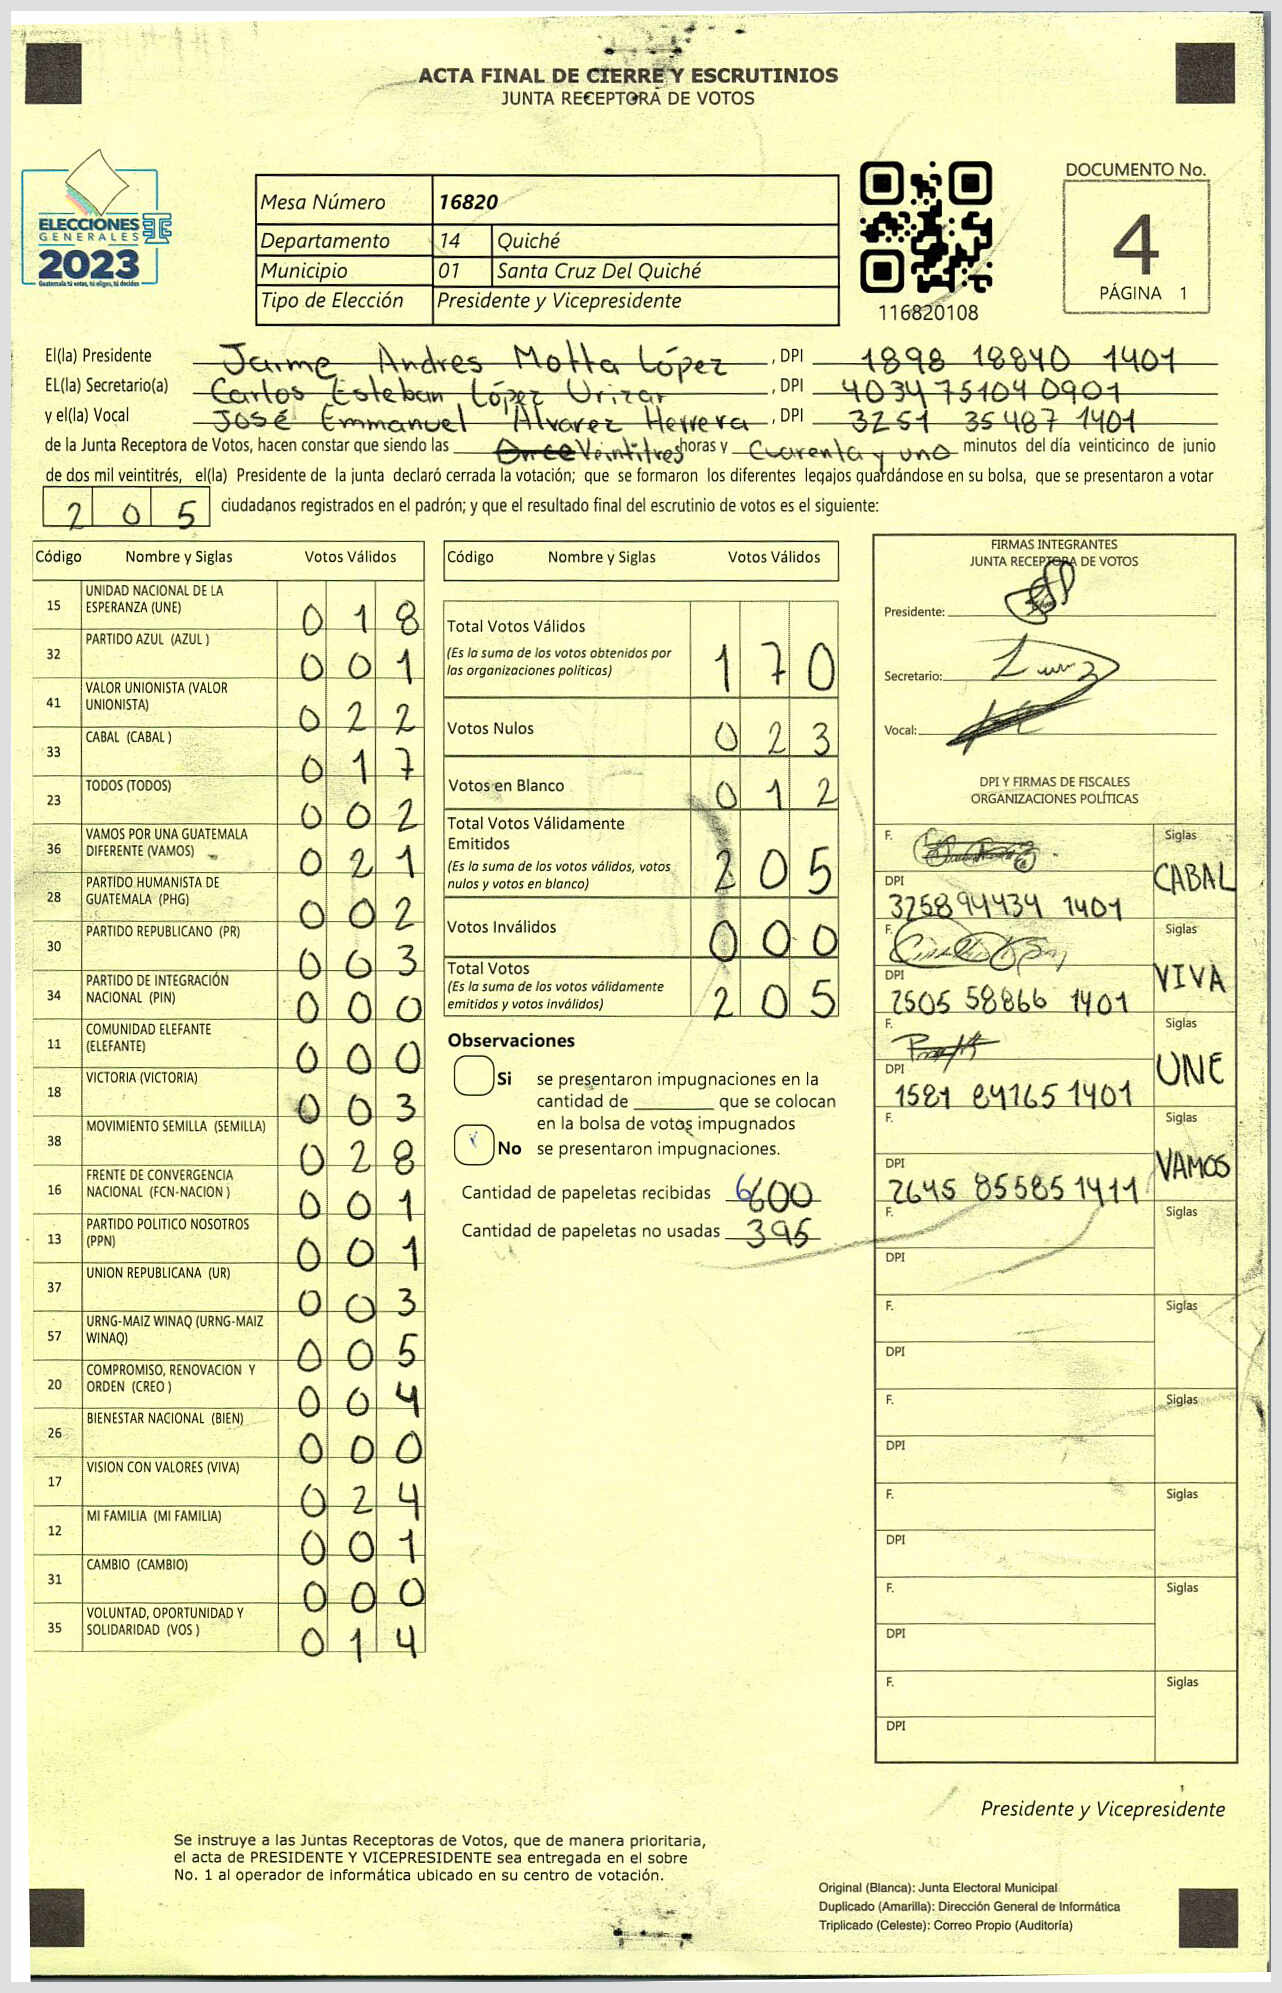 ACTA FINAL DE CIERRE Y ESCRUTINIOS
JUNTA RECEPTORA DE VOTOS
ELECCIONES
GENERALES
2023
Guatemala tú votas, tú eliges, tú decides
Mesa Número 16820
Departamento 14 Quiché
Municipio 01 Santa Cruz Del Quiché
Tipo de Elección Presidente y Vicepresidente
116820108
DOCUMENTO No.
4
PÁGINA 1
El(la) Presidente Jaime Andres Motta López, DPI 1898 18840 1401
EL(la) Secretario(a) Carlos Esteban López Urizar, DPI 4034 75104 0901
y el(la) Vocal José Emmanuel Alvarez Herrera, DPI 3251 35487 1401
de la Junta Receptora de Votos, hacen constar que siendo las Once Veintitres horas y Cuarenta y uno minutos del día veinticinco de junio
de dos mil veintitrés, el(la) Presidente de la junta declaró cerrada la votación; que se formaron los diferentes legajos guardándose en su bolsa, que se presentaron a votar
205 ciudadanos registrados en el padrón; y que el resultado final del escrutinio de votos es el siguiente:
Código Nombre y Siglas Votos Válidos
15 UNIDAD NACIONAL DE LA ESPERANZA (UNE) 018
32 PARTIDO AZUL (AZUL ) 001
41 VALOR UNIONISTA (VALOR UNIONISTA) 022
33 CABAL (CABAL ) 017
23 TODOS (TODOS) 002
36 VAMOS POR UNA GUATEMALA DIFERENTE (VAMOS) 021
28 PARTIDO HUMANISTA DE GUATEMALA (PHG) 002
30 PARTIDO REPUBLICANO (PR) 003
34 PARTIDO DE INTEGRACIÓN NACIONAL (PIN) 000
11 COMUNIDAD ELEFANTE (ELEFANTE) 000
18 VICTORIA (VICTORIA) 003
38 MOVIMIENTO SEMILLA (SEMILLA) 028
16 FRENTE DE CONVERGENCIA NACIONAL (FCN-NACION ) 001
13 PARTIDO POLITICO NOSOTROS (PPN) 001
37 UNION REPUBLICANA (UR) 003
57 URNG-MAIZ WINAQ (URNG-MAIZ WINAQ) 005
20 COMPROMISO, RENOVACION Y ORDEN (CREO ) 004
26 BIENESTAR NACIONAL (BIEN) 000
17 VISION CON VALORES (VIVA) 024
12 MI FAMILIA (MI FAMILIA) 001
31 CAMBIO (CAMBIO) 000
35 VOLUNTAD, OPORTUNIDAD Y SOLIDARIDAD (VOS ) 014
Código Nombre y Siglas Votos Válidos
Total Votos Válidos
(Es la suma de los votos obtenidos por
las organizaciones políticas) 170
Votos Nulos 023
Votos en Blanco 012
Total Votos Válidamente
Emitidos
(Es la suma de los votos válidos, votos
nulos y votos en blanco) 205
Votos Inválidos 000
Total Votos
(Es la suma de los votos válidamente
emitidos y votos inválidos) 205
Observaciones
Si se presentaron impugnaciones en la
cantidad de ________ que se colocan
en la bolsa de votos impugnados
No se presentaron impugnaciones.
Cantidad de papeletas recibidas 600
Cantidad de papeletas no usadas 395
FIRMAS INTEGRANTES
JUNTA RECEPTORA DE VOTOS
Presidente:
Secretario:
Vocal:
DPI Y FIRMAS DE FISCALES
ORGANIZACIONES POLÍTICAS
F. Siglas
CABAL
DPI
3258 94434 1401
F. Siglas
VIVA
DPI
2505 58866 1401
F. Siglas
UNE
DPI
1581 84765 1401
F. Siglas
VAMOS
DPI
2645 85585 1411
F. Siglas
DPI
F. Siglas
DPI
F. Siglas
DPI
F. Siglas
DPI
F. Siglas
DPI
F. Siglas
DPI
Presidente y Vicepresidente
Se instruye a las Juntas Receptoras de Votos, que de manera prioritaria,
el acta de PRESIDENTE Y VICEPRESIDENTE sea entregada en el sobre
No. 1 al operador de informática ubicado en su centro de votación.
Original (Blanca): Junta Electoral Municipal
Duplicado (Amarilla): Dirección General de Informática
Triplicado (Celeste): Correo Propio (Auditoría)